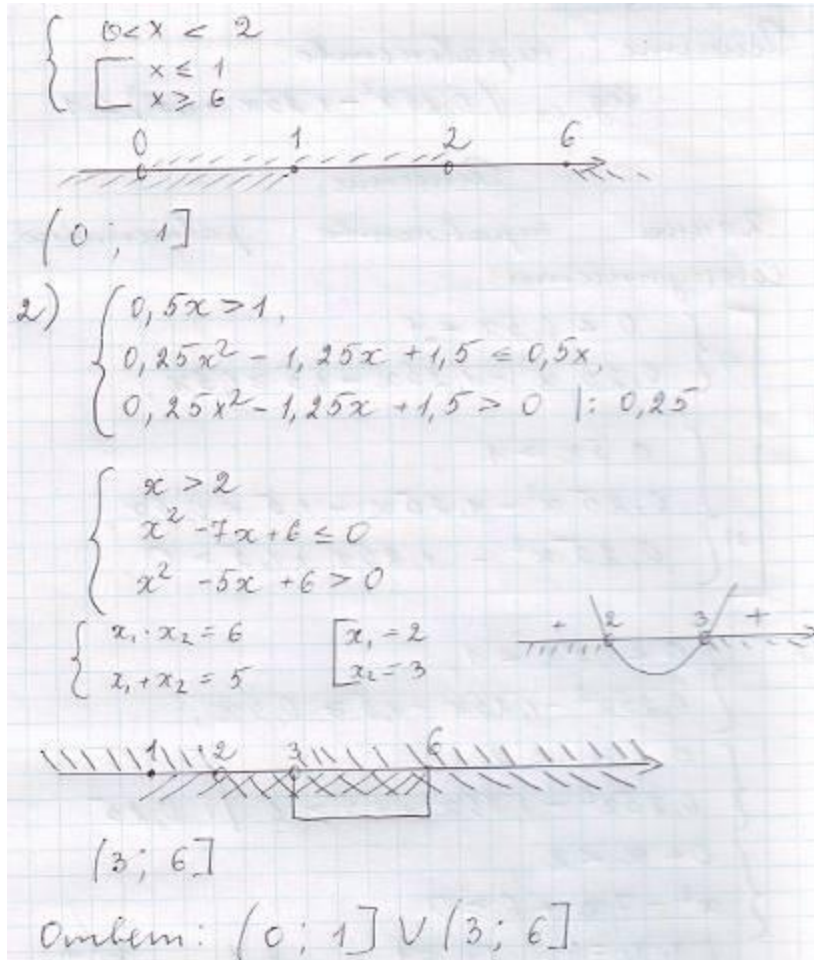 { 0 < x < 2
[ x ≤ 1
x ≥ 6
0 1 2 6
(0; 1]
2) { 0,5x > 1,
0,25x² - 1,25x + 1,5 ≤ 0,5x,
0,25x² - 1,25x + 1,5 > 0 |: 0,25
{ x > 2
x² - 7x + 6 ≤ 0
x² - 5x + 6 > 0
{ x₁ · x₂ = 6 [ x₁ = 2
x₁ + x₂ = 5 x₂ = 3
+ 2 3 +
1 2 3 6
(3; 6]
Ответ: (0; 1] ∪ (3; 6]